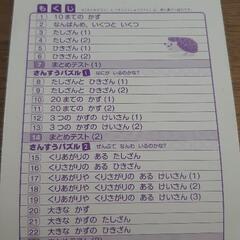 もくじ
1 10までの かず
2 なんばんめ、いくつと いくつ
3 たしざん (1)
4 たしざん (2)
5 ひきざん (1)
6 ひきざん (2)
7 まとめテスト (1)
さんすうパズル 1 なにが いるのかな?
8 たしざんと ひきざん (1)
9 たしざんと ひきざん (2)
10 20までの かず (1)
11 20までの かず (2)
12 3つの かずの けいさん (1)
13 3つの かずの けいさん (2)
14 まとめテスト (2)
さんすうパズル 2 ぜんぶで なんわ いるのかな?
15 くりあがりの ある たしざん
16 くりさがりの ある ひきざん
17 くりあがりや くりさがりの ある けいさん (1)
18 くりあがりや くりさがりの ある けいさん (2)
19 くりあがりや くりさがりの ある けいさん (3)
20 大きな かず
21 大きな かずの たしざん
22 大きな かずの ひきざん
23 まとめテスト (3)